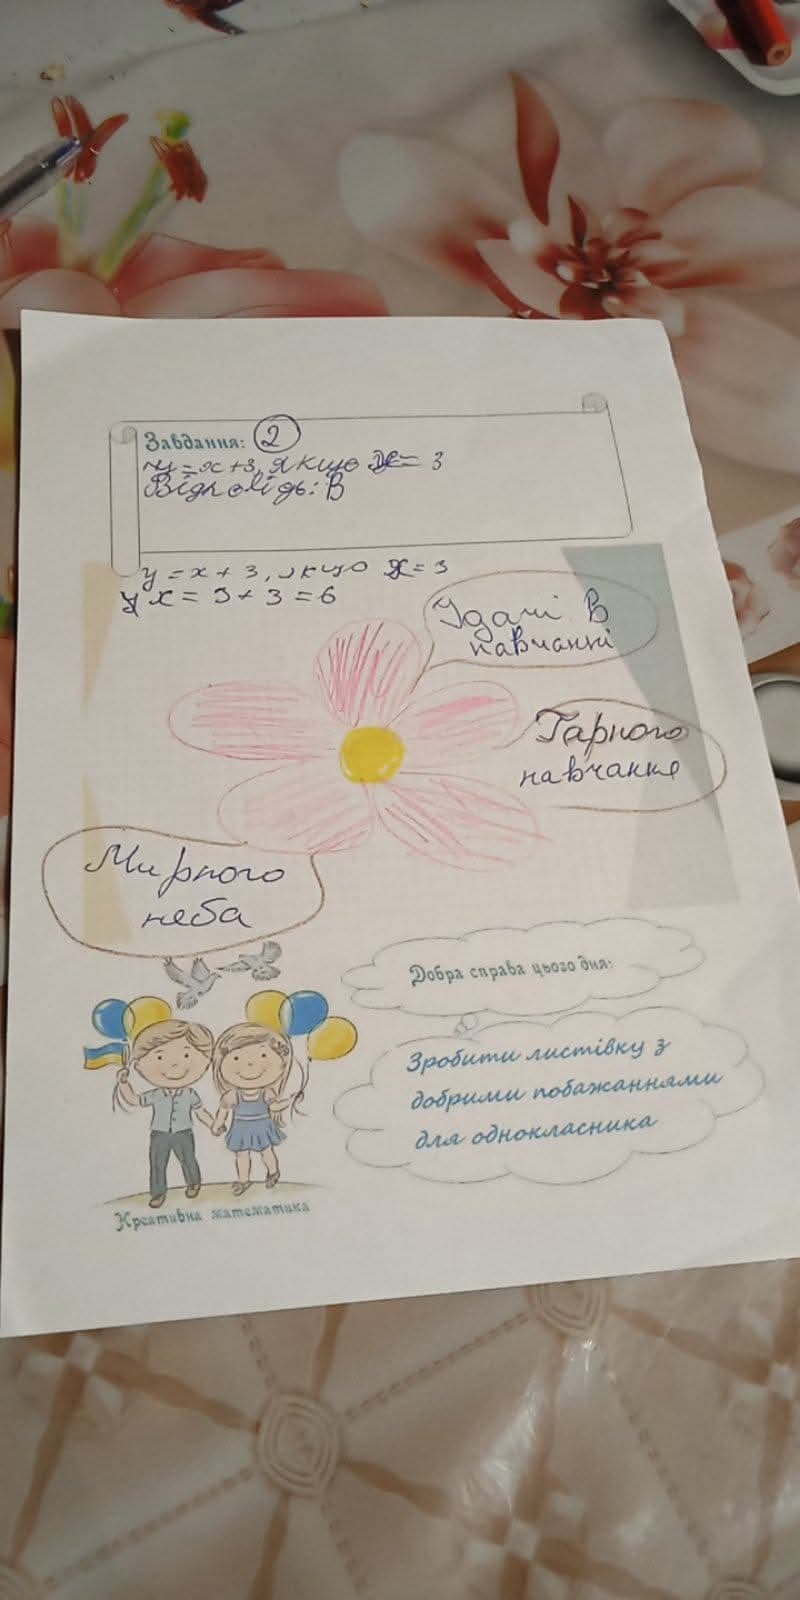 Завдання: 2
y = x + 3, якщо x = 3
Відповідь: В
y = x + 3, якщо x = 3
y x = 3 + 3 = 6
Удачі в
навчанні
Гарного
навчання
Мирного
неба
Добра справа цього дня:
Зробити листівку з
добрими побажаннями
для однокласника
Креативна математика